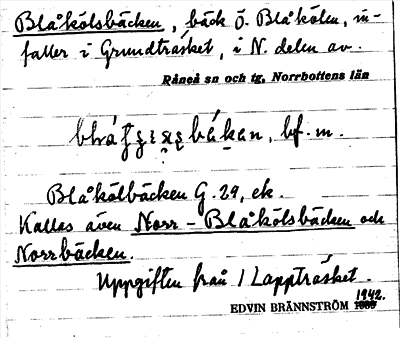 Blåkölsbäcken, bäck ö. Blåkölen, in-
faller i Grundträsket, i N. delen av.
Råneå sn och tg, Norrbottens län
bf. m.
Blåkölbäcken G. 29, ek.
Kallas även Norr-Blåkölsbäcken och
Norrbäcken.
Uppgiften från 1 Lappträsket.
EDVIN BRÄNNSTRÖM 1942.